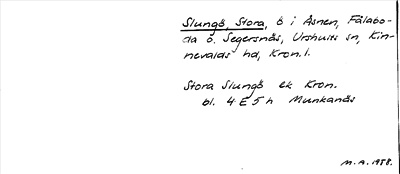 Slungö, Stora, ö i Åsnen, Fälabo-
da o. Segersnäs, Urshults sn, Kin-
nevalds hd, Kron. l.
Stora Slungö ek Kron.
bl. 4 E 5 h Munkanäs
M.A. 1958.